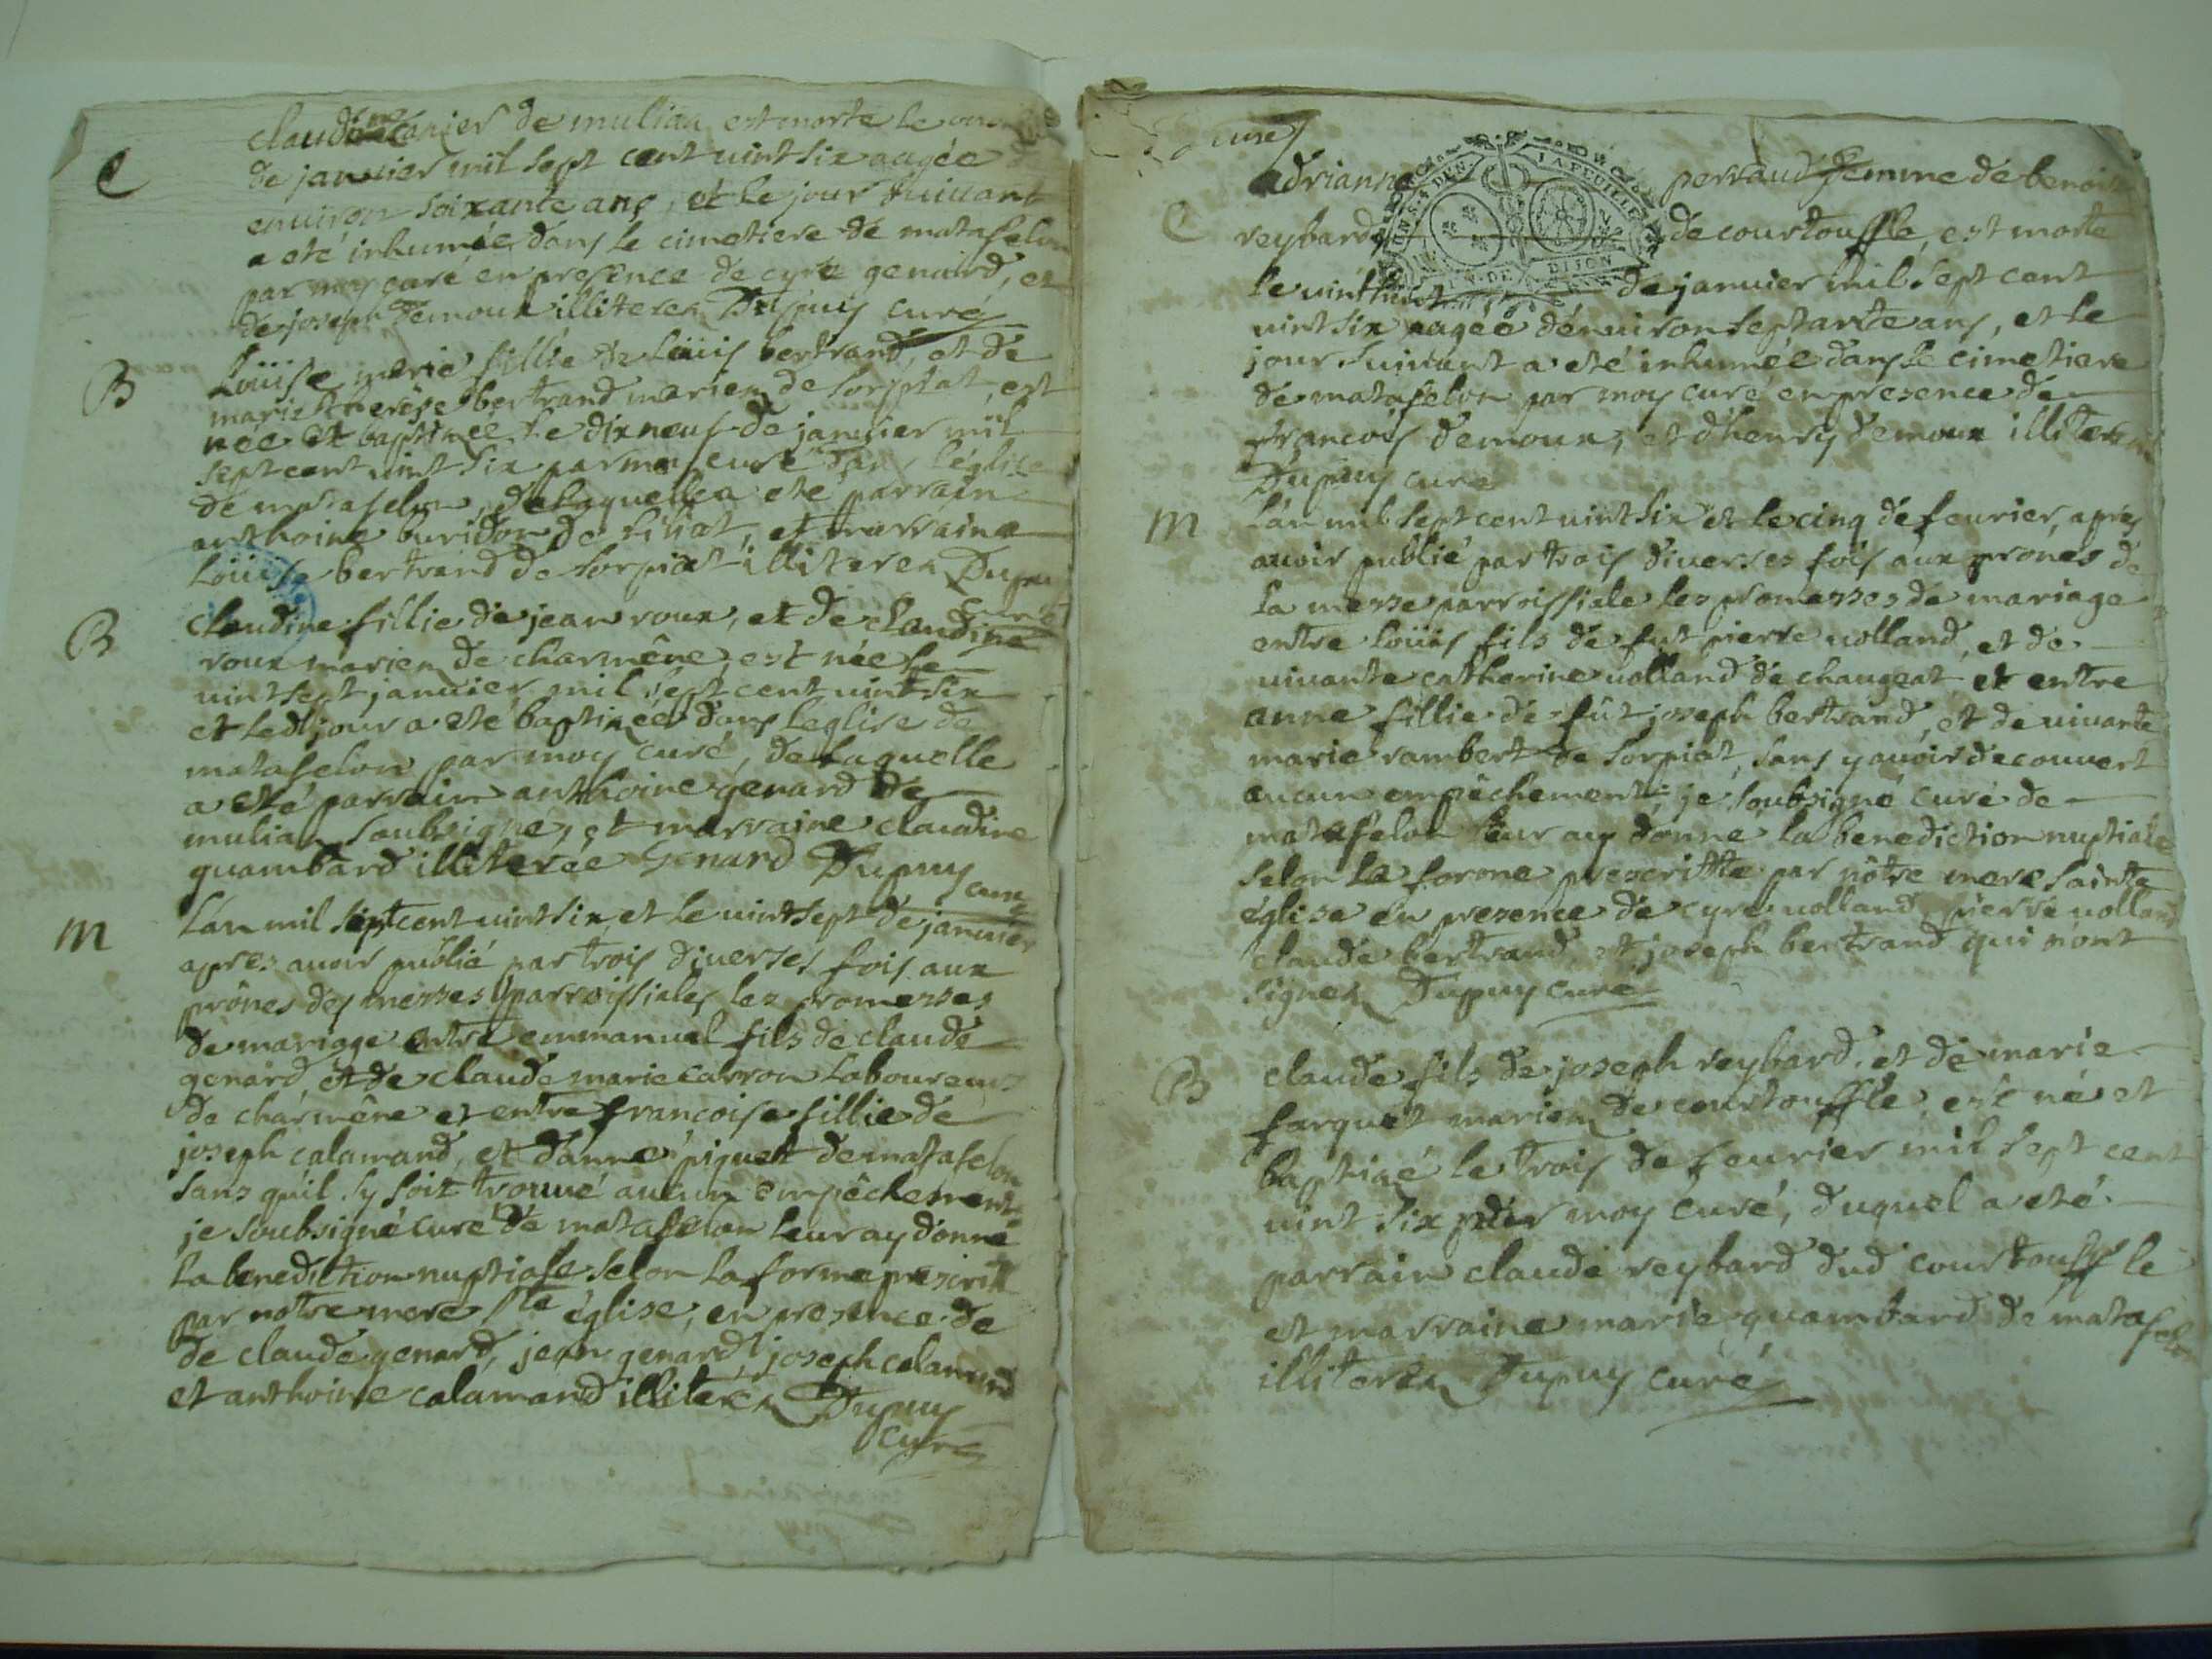 C
claudine canier de mulian est morte le
de januier mil sept cent uint six aagée
enuiron soixante ans, et le jour suiuant
a eté inhumée dans le cimetiere de matafelon
par moy curé en presence de cyre genard, et
de joseph demoux illiterez Dupuy curé
B
Loüise marie fillie de Loüis bertrand, et de
marie therése bertrand mariez de sorpiat, est
née et baptizée le dix neuf de januier mil
sept cent uint six par moy curé dans l'églize
de matafelon, de laquelle a eté parrain
anthoine buridon de siliat, et marraine
Loüise bertrand de sorpiat illiterez Dupuy
curé
B
claudine fillie de jean roux, et de claudine
roux mariez de charmêne, est née le
uint sept januier mil sept cent uint six
et led jour a eté baptizée dans leglise de
matafelon par moy curé, de laquelle
a eté parrain anthoine genard de
mulian soubsigné, et marraine claudine
quambard illiterée Genard Dupuy
curé
M
L'an mil sept cent uint six, et le uint sept de januier
apres auoir publié par trois diuerses fois aux
prônes des messes parroissiales les promesses
de mariage entre emmanuel fils de claude
genard et de claude marie carron laboureurs
de charmêne et entre francoise fillie de
joseph calamand, et d'anne piquet de matafelon
sans qu'il sy soit trouué aucun empêchement
je soubsigné curé de matafelon leur ay donné
la benediction nuptiale selon la forme prescritte
par notre mere ste église, en presence de
de claude genard, jean genard, joseph calamand
et anthoine calamand illiterez Dupuy
curé
curé
C
adrianne perraud femme de benoist
reybard de courtouffle, est morte
le uint huit de januier mil sept cent
uint six aagée d'enuiron septante ans, et le
jour suiuant a eté inhumée dans le cimetiere
de matafelon par moy curé en presence de
francois demoux, et d'henry demoux illiterez
Dupuy curé
M
L'an mil sept cent uint six et le cinq de feurier, apres
auoir publié par trois diuerses fois aux prônes de
la messe parroissiale les promesses de mariage
entre loüis fils de fut pierre uolland, et de
uiuante catherine uolland de changeat et entre
anne fillie de fût joseph bertrand, et de uiuante
marie rambert de sorpiat, sans y auoir decouuert
aucun empêchement; je soubsigné curé de
matafelon leur ay donné la benediction nuptiale
selon la forme prescritte par nôtre mere sainte
église en presence de cyre uolland, pierre uolland
claude bertrand, et joseph bertrand qui n'ont
signez Dupuy curé
B
claude fils de joseph reybard, et de marie
farguet mariez de courtouffle, est né et
baptizé le trois de feurier mil sept cent
uint six par moy curé, duquel a eté
parrain claude reybard dud courtouffle
et marraine marie quambard de matafelon
illiterez Dupuy curé